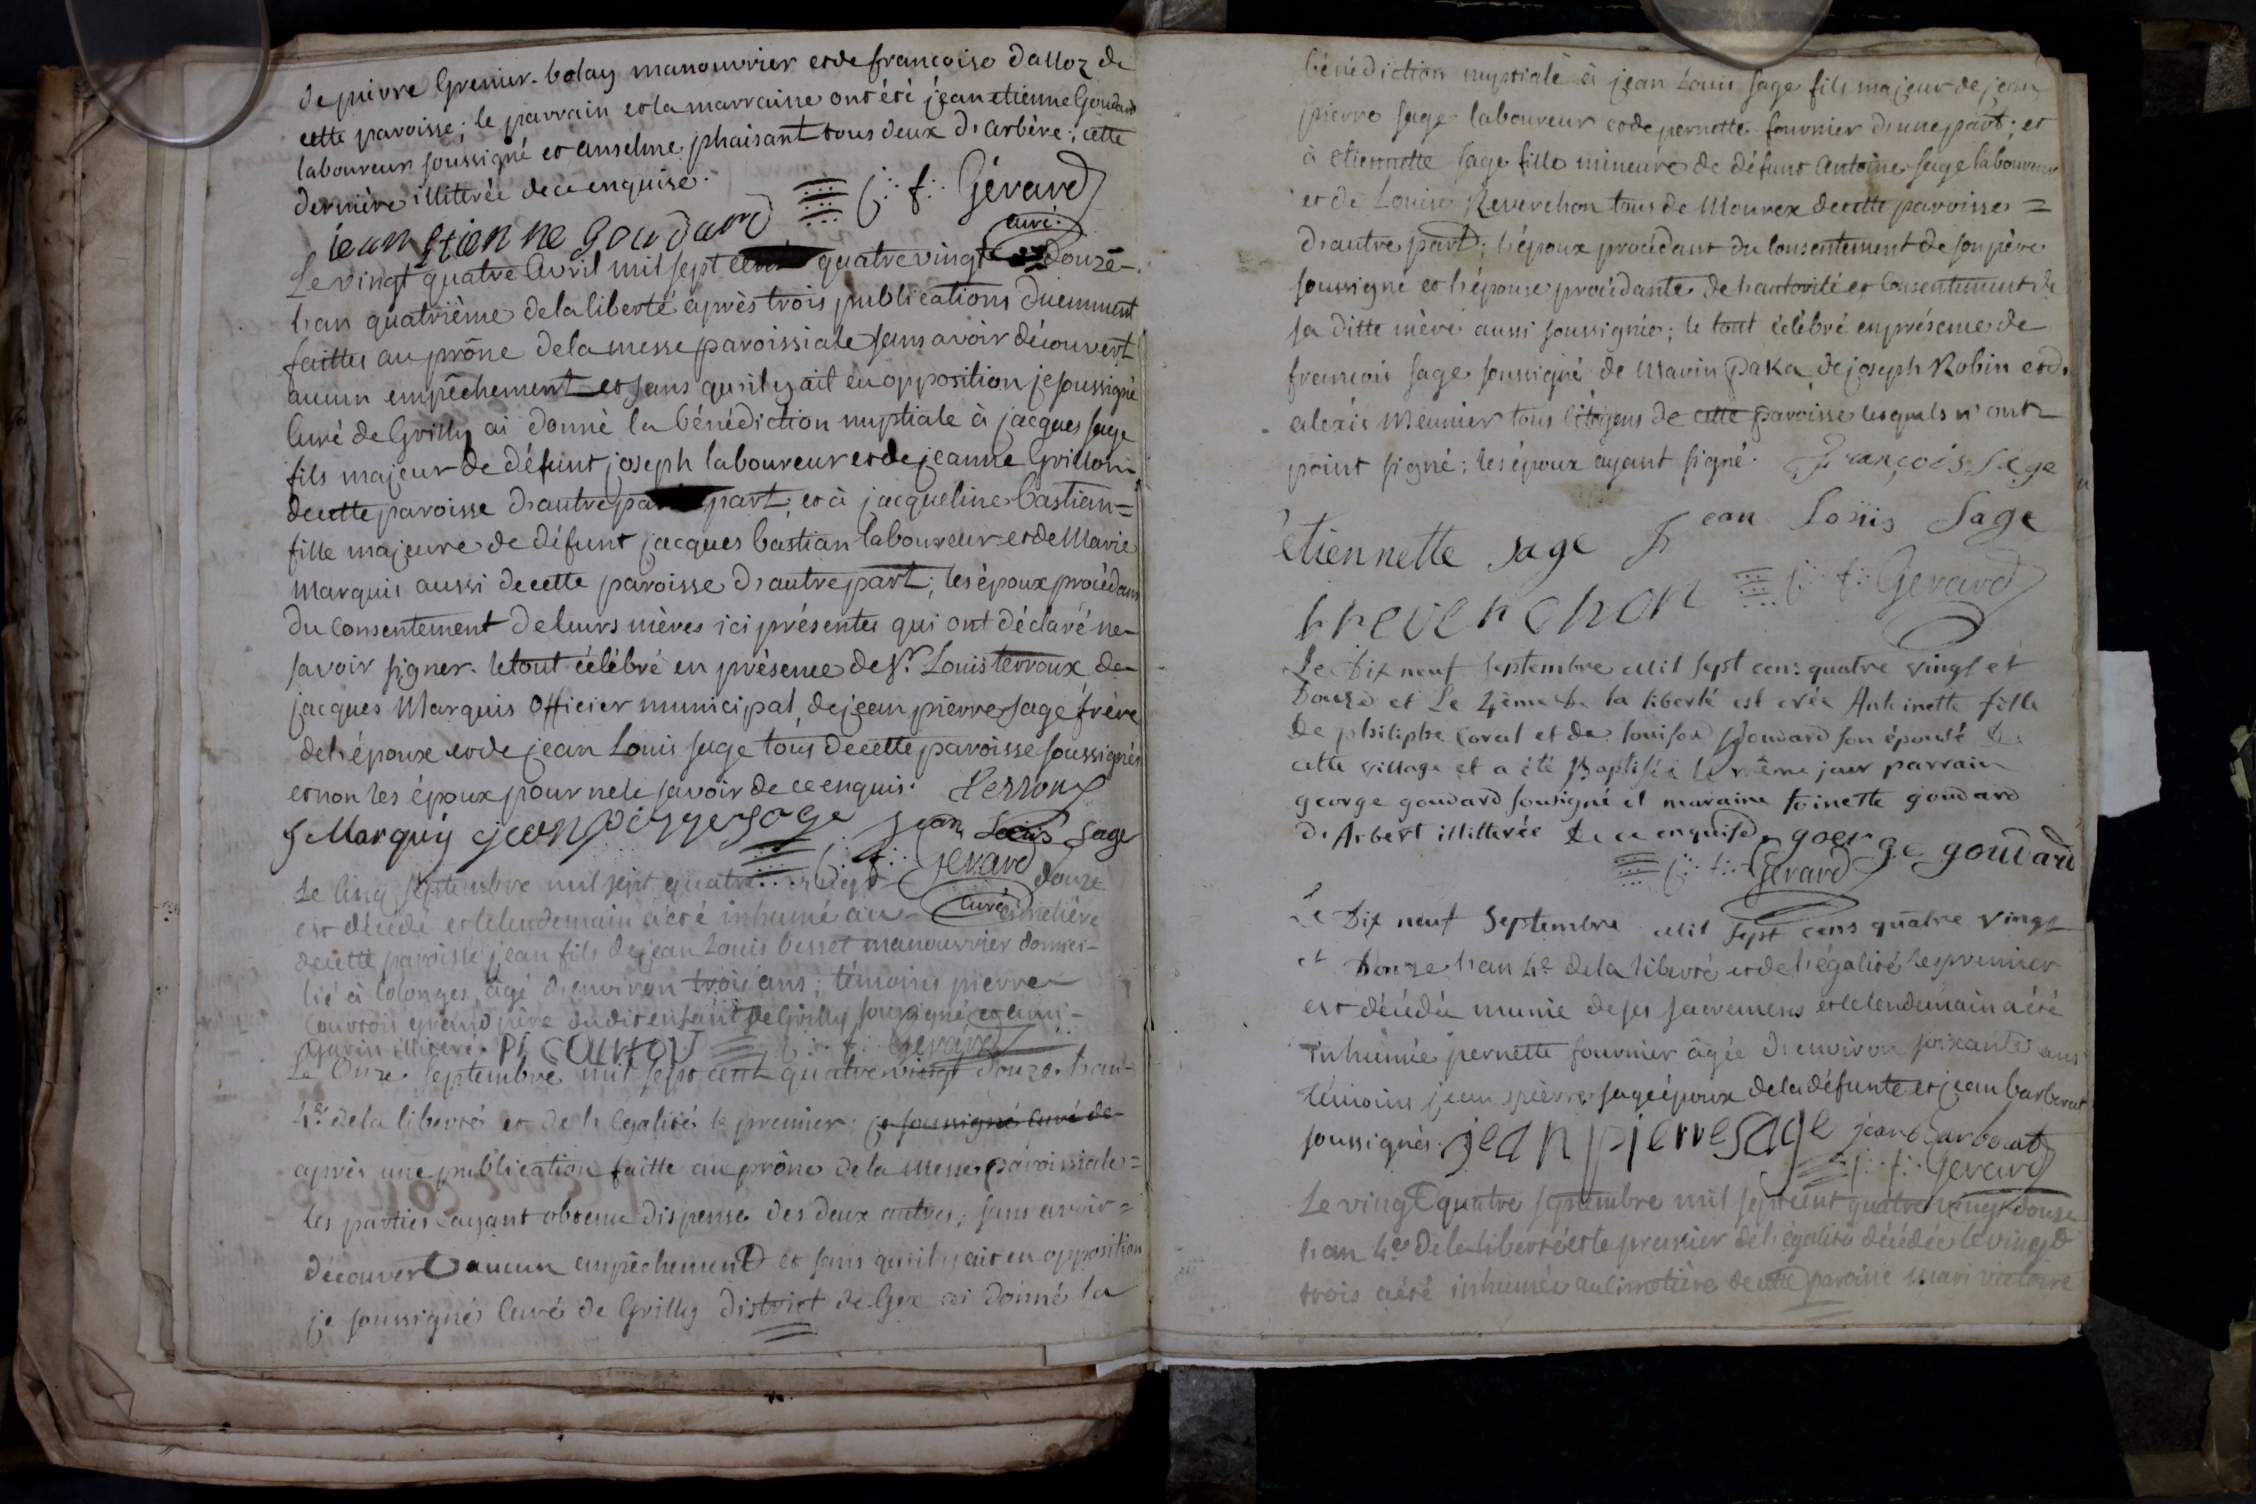 de pierre Grenier-bolay manouvrier et de francoise dalloz de
cette paroisse; le parrain et la marraine ont été jean etienne Goudard
laboureur soussigné et anselme phaisant tous deux d'arbère; cette
dernière illiterée de ce enquise.
jean Etienne Goudard Gérard
curé.
Le vingt quatre Avril mil sept cent quatre vingt douze
l'an quatrième de la liberté après trois publications duement
faittes au prône de la messe paroissiale sans avoir découvert
aucun empêchement et sans qu'il y ait eu opposition je soussigné
Curé de Grilly ai donné la bénédiction nuptiale à jacques sage
fils majeur de défunt joseph laboureur et de jeanne Grillon
de cette paroisse d'autre part; et à jacqueline bastian =
fille majeure de défunt jacques bastian laboureur et de Marie
Marquis aussi de cette paroisse d'autre part; les époux procédans
du consentement de leurs mères ici présentes qui ont déclaré ne
savoir signer. le tout célébré en présence de Sr. Louis terroux de
jacques Marquis Officier municipal, de jean pierre sage frère
de l'époux et de jean Louis sage tous de cette paroisse soussignés
et non les époux pour ne le savoir de ce enquis. Terroux
J Marquis jean pierre sage jean Louis Sage
Gérard
curé
Le Cinq septembre mil sept quatre vingt douze
est décédé et le lendemain a été inhumé au cimetière
de cette paroisse jean fils de jean Louis besset manouvrier domici-
lié à Colonges, âgé d'environ trois ans; témoins pierre
Courtois grand père dudit enfant de Grilly soussigné et ami
Marin illiteré. Pi courtois Gérard
Le Onze septembre mil sept cent quatre vingt douze l'an
4e de la liberté et de l'égalité le premier; je soussigné curé de
après une publication faitte au prône de la Messe paroissiale =
les parties ayant obtenu dispense des deux autres; sans avoir =
découvert aucun empêchement et sans qu'il y ait eu opposition
je soussigné Curé de Grilly district de Gex ai donné la
bénédiction nuptiale à jean Louis sage fils majeur de jean
pierre sage laboureur et de pernette fournier d'une part; et
à etiennette sage fille mineure de défunt Antoine sage laboureur
et de Louise Reverchon tous de Mourex de cette paroisse =
d'autre part; l'époux procédant du consentement de son père
soussigné et l'épouse procédante de l'autorité et consentement de
sa ditte mère aussi soussignée; le tout célébré en présence de
francois sage soussigné de Marin paka, de joseph Robin et d'
alexis Meunier tous Citoyens de cette paroisse lesquels n'ont
point signé; les époux ayant signé. François Sage
étiennette sage jean Louis Sage
l reverchon Gerard
Le Dix neuf septembre Mil sept cens quatre vingt et
Douze et Le 4ème de la liberté est crée Antoinette fille
De philiphe Coral et de louison goudard son épouse de
cette village et a été Baptisée le même jour parrain
george goudard sousigné et maraine toinette goudard
d'Arbert illitterée de ce enquise. goerge goudard
Gerard
Le Dix neuf Septembre Mil sept cens quatre vingt
et Douze l'an 4e de la liberté et de l'égalité le premier
est décédée munie de ses sacremens et le lendemain a été
inhumée pernette fournier âgée d'environ soixante ans
témoins jean pierre sage époux de la défunte et jean barberat
soussignés. jean pierre sage jean barberat
Gerard
Le vingt quatre septembre mil sept cent quatre vingt douze
l'an 4e de la liberté et le premier de l'égalité décédée le vingt
trois a été inhumée au cimetière de cette paroisse Mari victoire